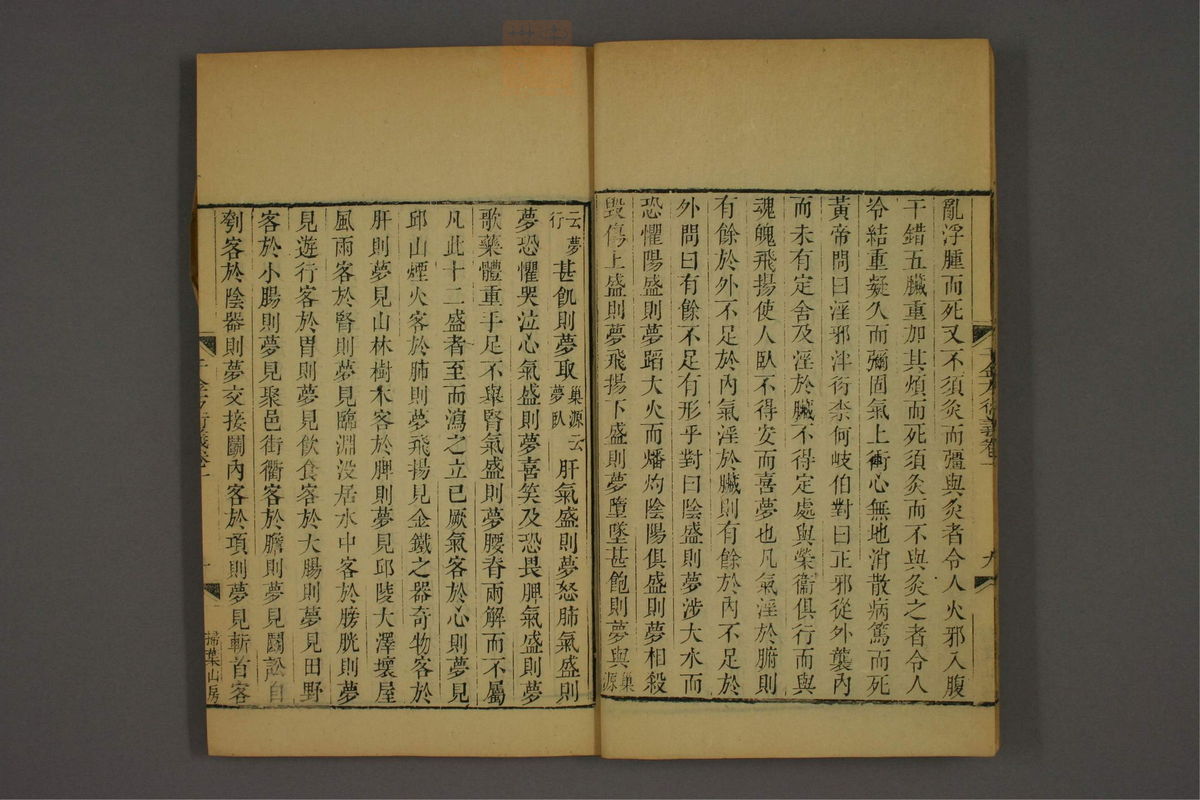 亂浮腫而死又不須灸而彊與灸者令人火邪入腹
干錯五臟重加其煩而死須灸而不與灸之者令人
冷結重凝久而彌固氣上衝心無地消散病篤而死
黃帝問曰淫邪泮衍柰何岐伯對曰正邪從外襲內
而未有定舍及淫於臟不得定處與榮衞俱行而與
魂魄飛揚使人臥不得安而喜夢也凡氣淫於腑則
有餘於外不足於內氣淫於臟則有餘於內不足於
外問曰有餘不足有形乎對曰陰盛則夢涉大水而
恐懼陽盛則夢蹈大火而燔灼陰陽俱盛則夢相殺
毀傷上盛則夢飛揚下盛則夢墮墜甚飽則夢與巢源
云夢行甚飢則夢取巢源云夢臥肝氣盛則夢怒肺氣盛則
夢恐懼哭泣心氣盛則夢喜笑及恐畏脾氣盛則夢
歌藥體重手足不舉腎氣盛則夢腰脊兩解而不屬
凡此十二盛者至而瀉之立已厥氣客於心則夢見
邱山煙火客於肺則夢飛揚見金鐵之器奇物客於
肝則夢見山林樹木客於脾則夢見邱陵大澤壞屋
風雨客於腎則夢見臨淵沒居水中客於膀胱則夢
見遊行客於胃則夢見飲食客於大腸則夢見田野
客於小腸則夢見聚邑街衢客於膽則夢見鬭訟自
刳客於陰器則夢交接鬭內客於項則夢見斬首客
千金方衍義卷一
掃葉山房